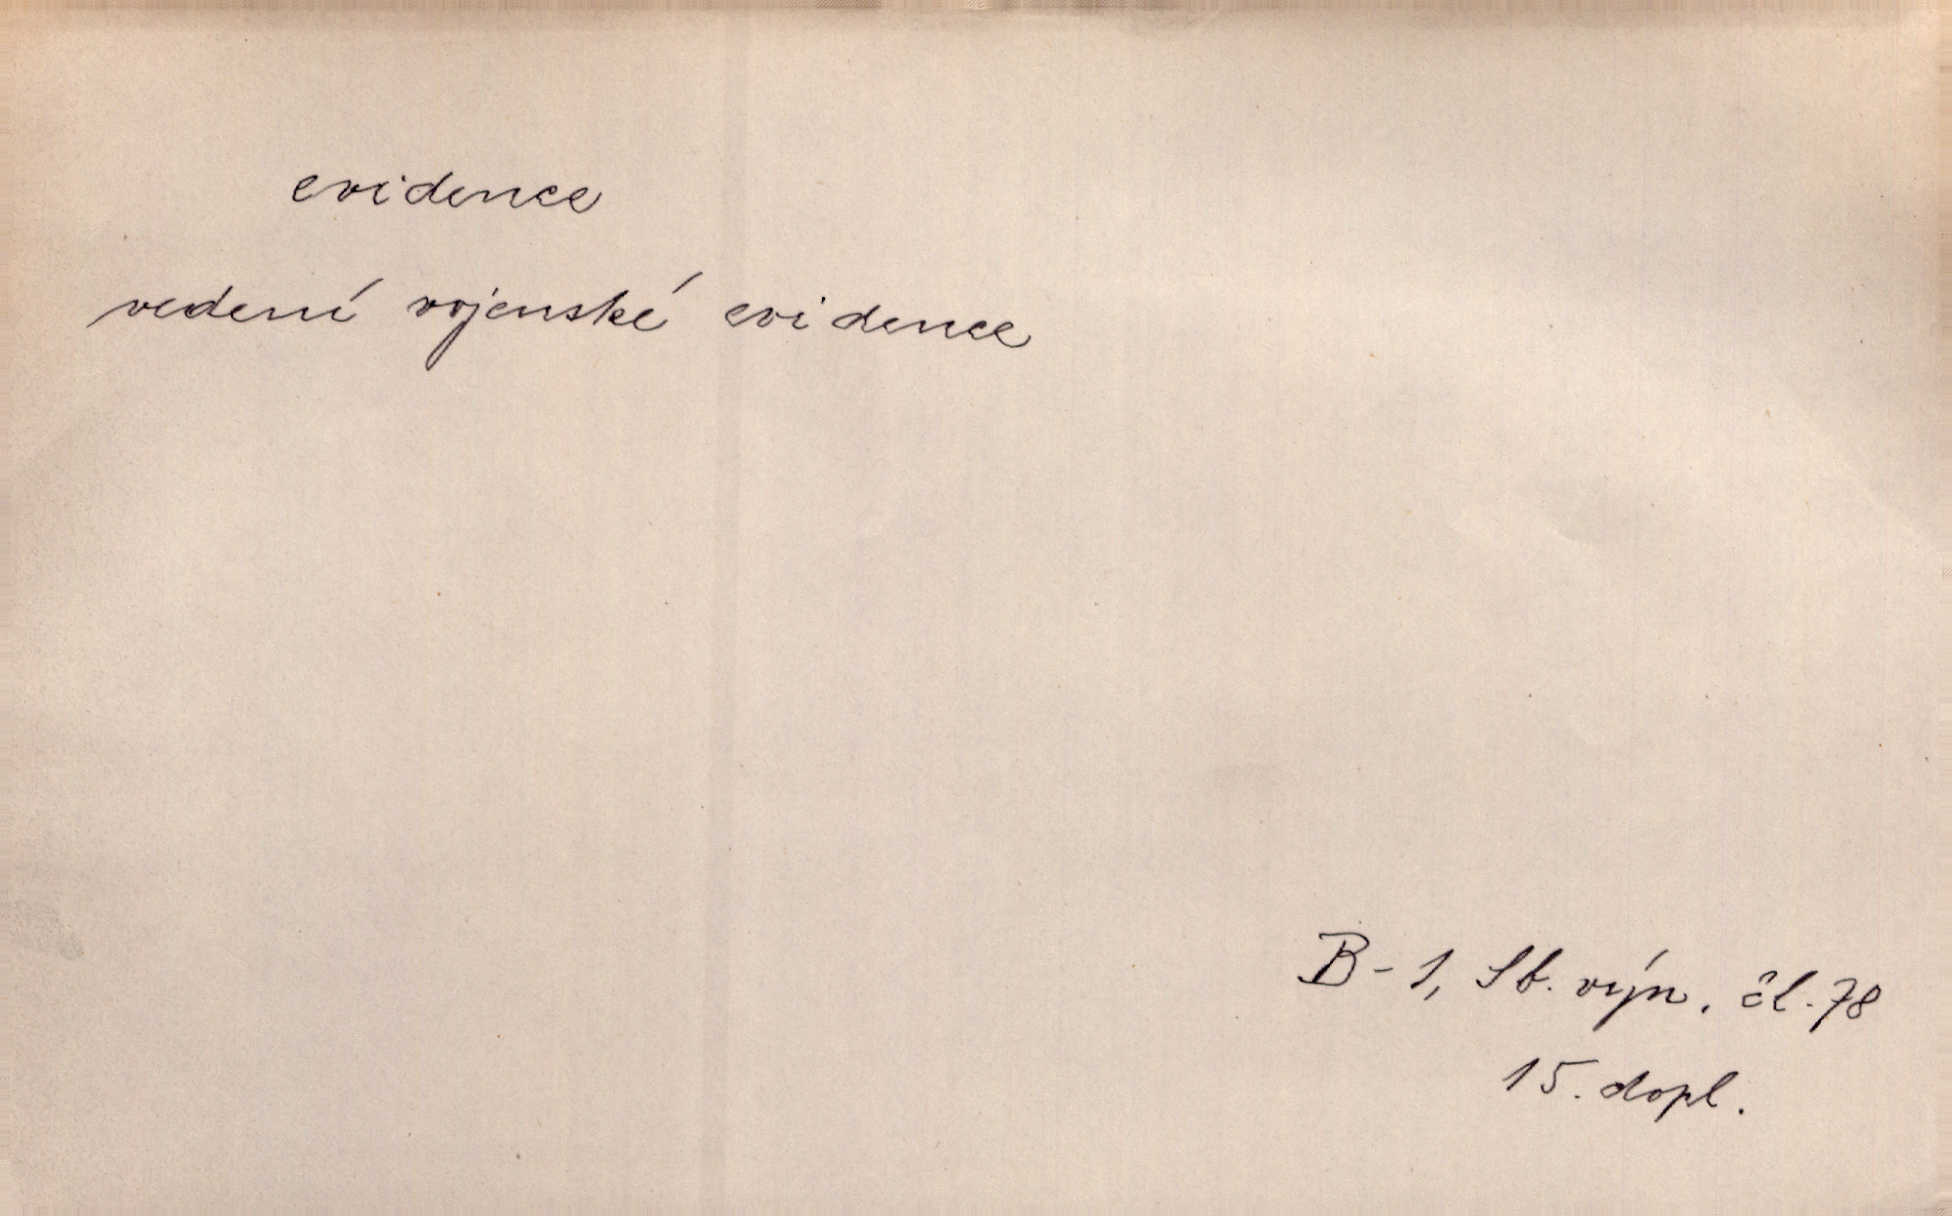 evidence
vedení vojenské evidence
B-1, Sb. výn. čl. 78
15. dopl.